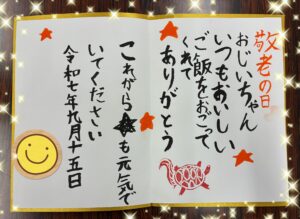 敬老の日
おじいちゃん
いつもおいしい
ご飯をおごって
くれて
ありがとう
これからも元気で
いてください
令和七年九月十五日